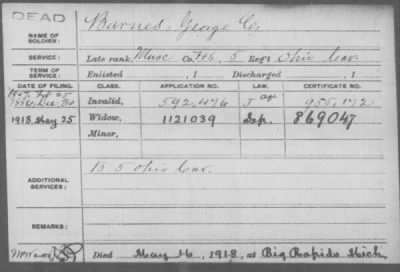 DEAD
NAME OF SOLDIER: Barnes, George C.
SERVICE: Late rank Musc Co. F&S, 5 Reg't Ohio Cav.
TERM OF SERVICE: Enlisted , 1 Discharged , 1
DATE OF FILING. CLASS. APPLICATION NO. LAW. CERTIFICATE NO.
Dec. 30 Invalid, 592,476 J age 955,172
1918 May 25 Widow, 1121039 869047
Minor,
ADDITIONAL SERVICES: B 5 Ohio Cav.
REMARKS:
Died May 16, 1918, at Big Rapids Mich